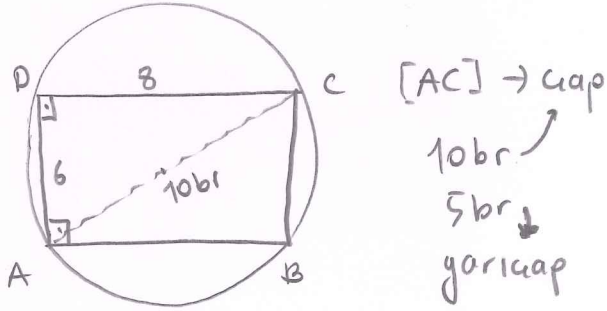 D 8 C
6
10br
A B
[AC] → çap
10br
5br
yarıçap